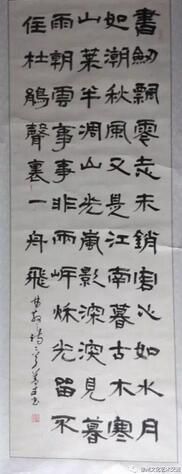 書劍飄零志未銷心如水月
如潮秋風又是江南暮古木寒
山葉半凋山光嵐影深深見暮
雨朝雲事事非兩岸秋光留不
住杜鵑聲裏一舟飛
州文化艺术交流